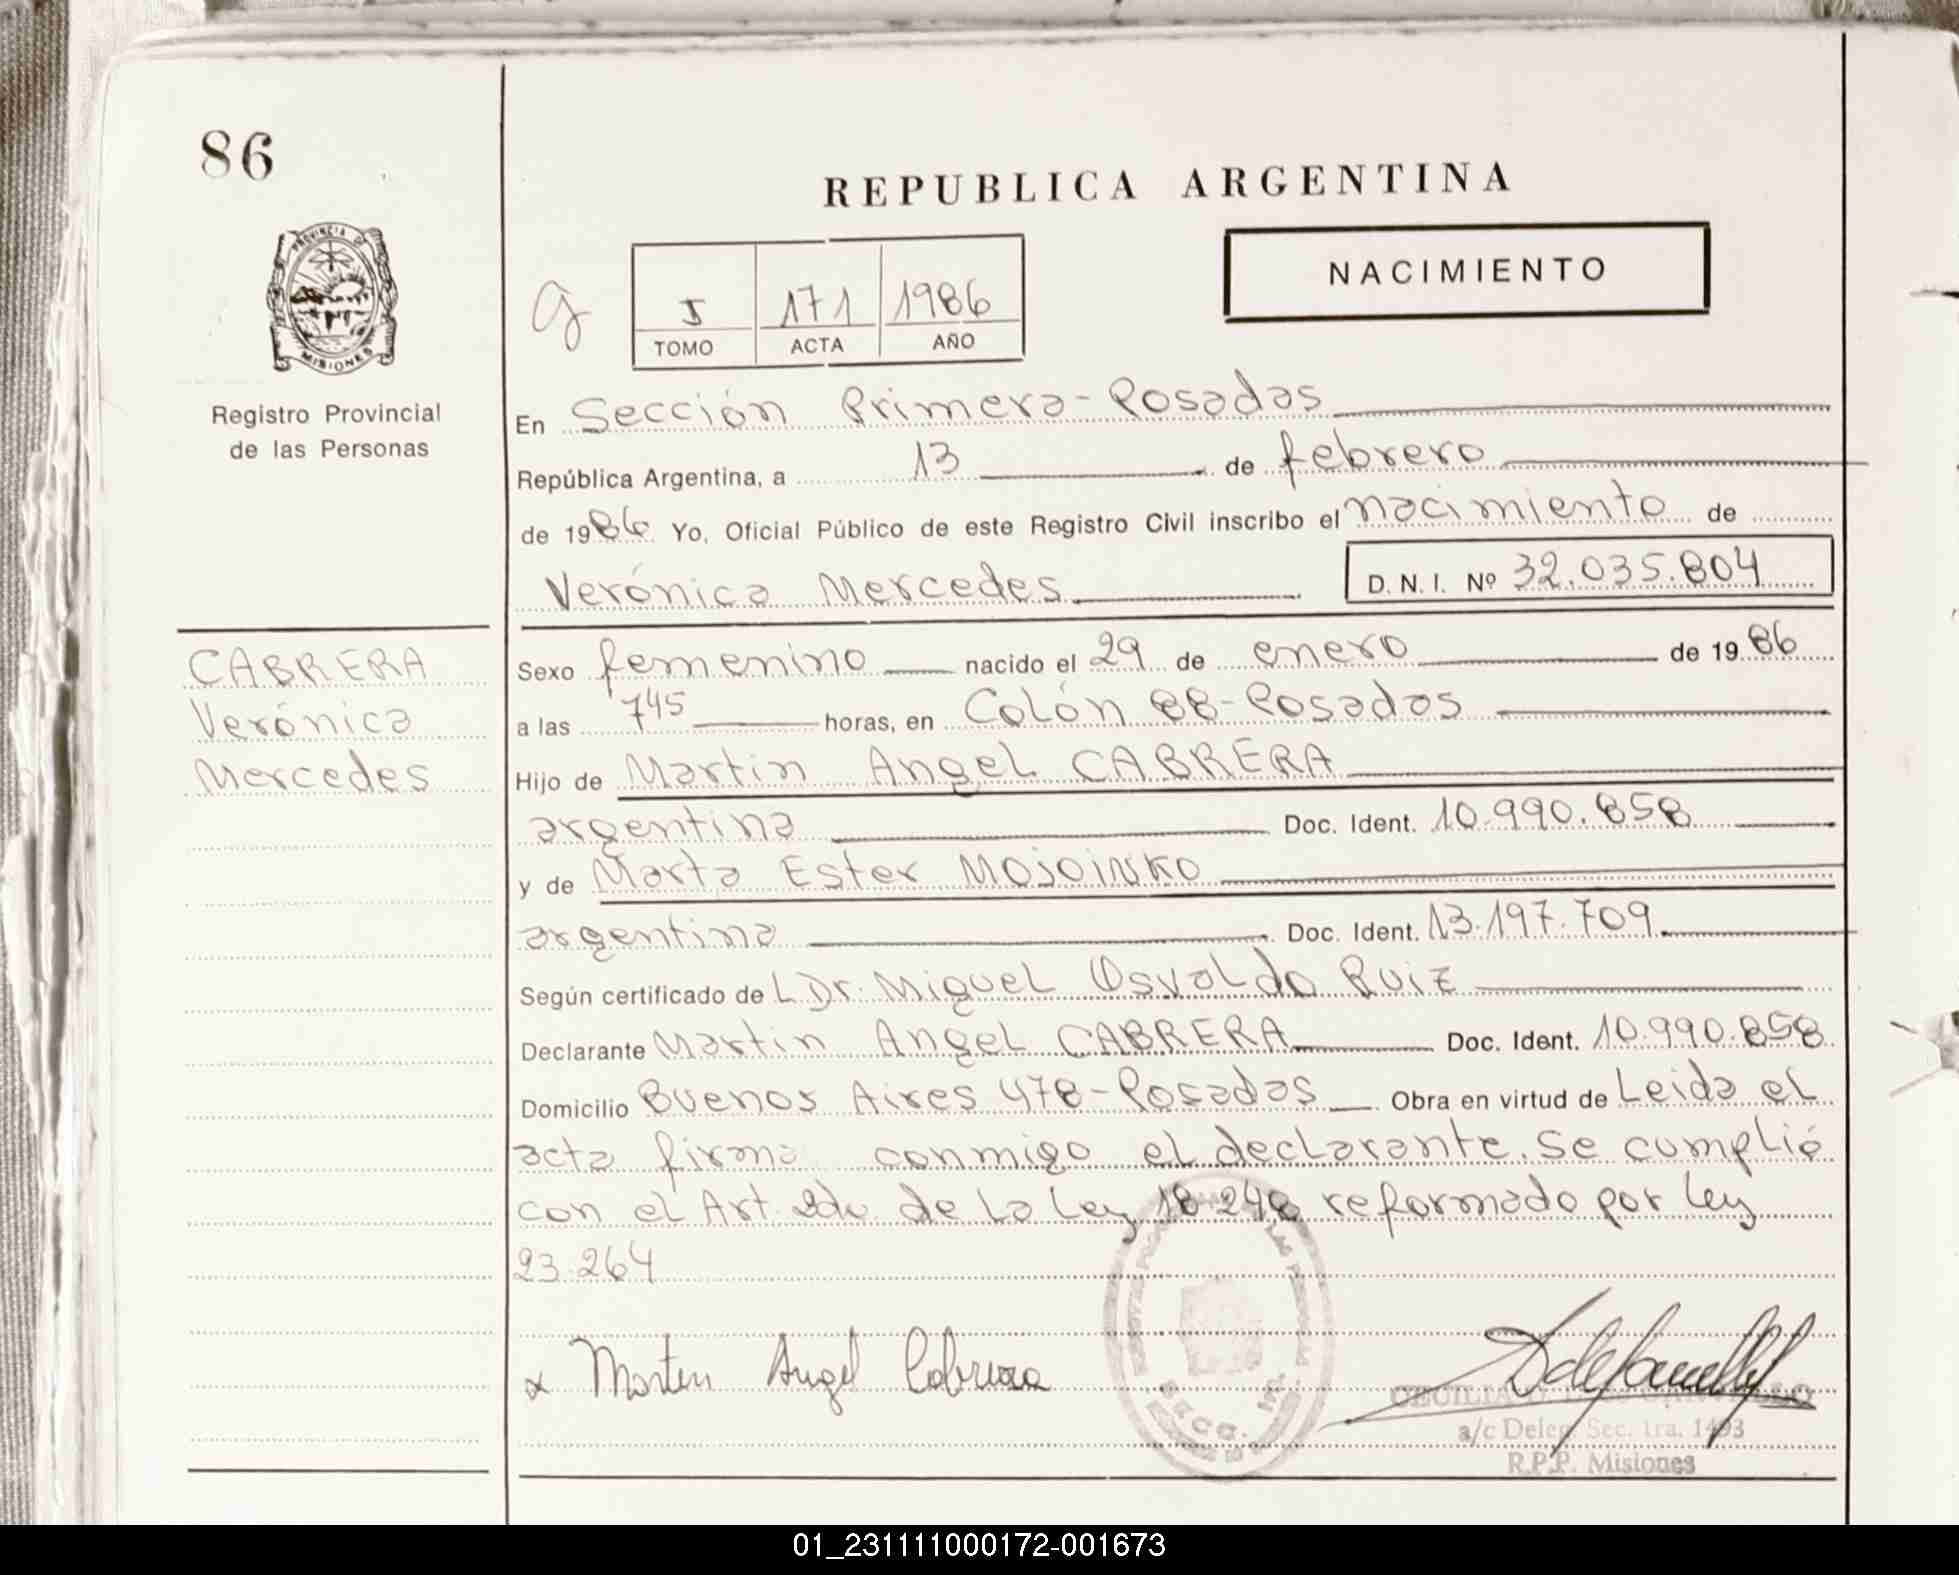 86
REPUBLICA ARGENTINA
PROVINCIA DE
MISIONES
Registro Provincial
de las Personas
J 171 1986
TOMO ACTA AÑO
NACIMIENTO
En Sección Primera-Posadas
República Argentina, a 13 de febrero
de 1986 Yo, Oficial Público de este Registro Civil inscribo el nacimiento de
Verónica Mercedes D. N. I. Nº 32.035.804
CABRERA
Verónica
Mercedes
Sexo femenino nacido el 29 de enero de 1986
a las 745 horas, en Colón 88-Posadas
Hijo de Martin Angel CABRERA
argentina Doc. Ident. 10.990.858
y de Marta Ester MOJOINKO
argentina Doc. Ident. 13.197.709
Según certificado deL Dr. Miguel Osvaldo Ruiz
Declarante Martin Angel CABRERA Doc. Ident. 10.990.858
Domicilio Buenos Aires 478-Posadas Obra en virtud de Leida el
acta firma conmigo el declarante. Se cumplió
con el Art. 2do de La Ley 18.248 reformado por Ley
23.264
x Martin Angel Cabrera
CECILIA
a/c Deleg. Sec. 1ra. 1493
R.P.P. Misiones
01_231111000172-001673